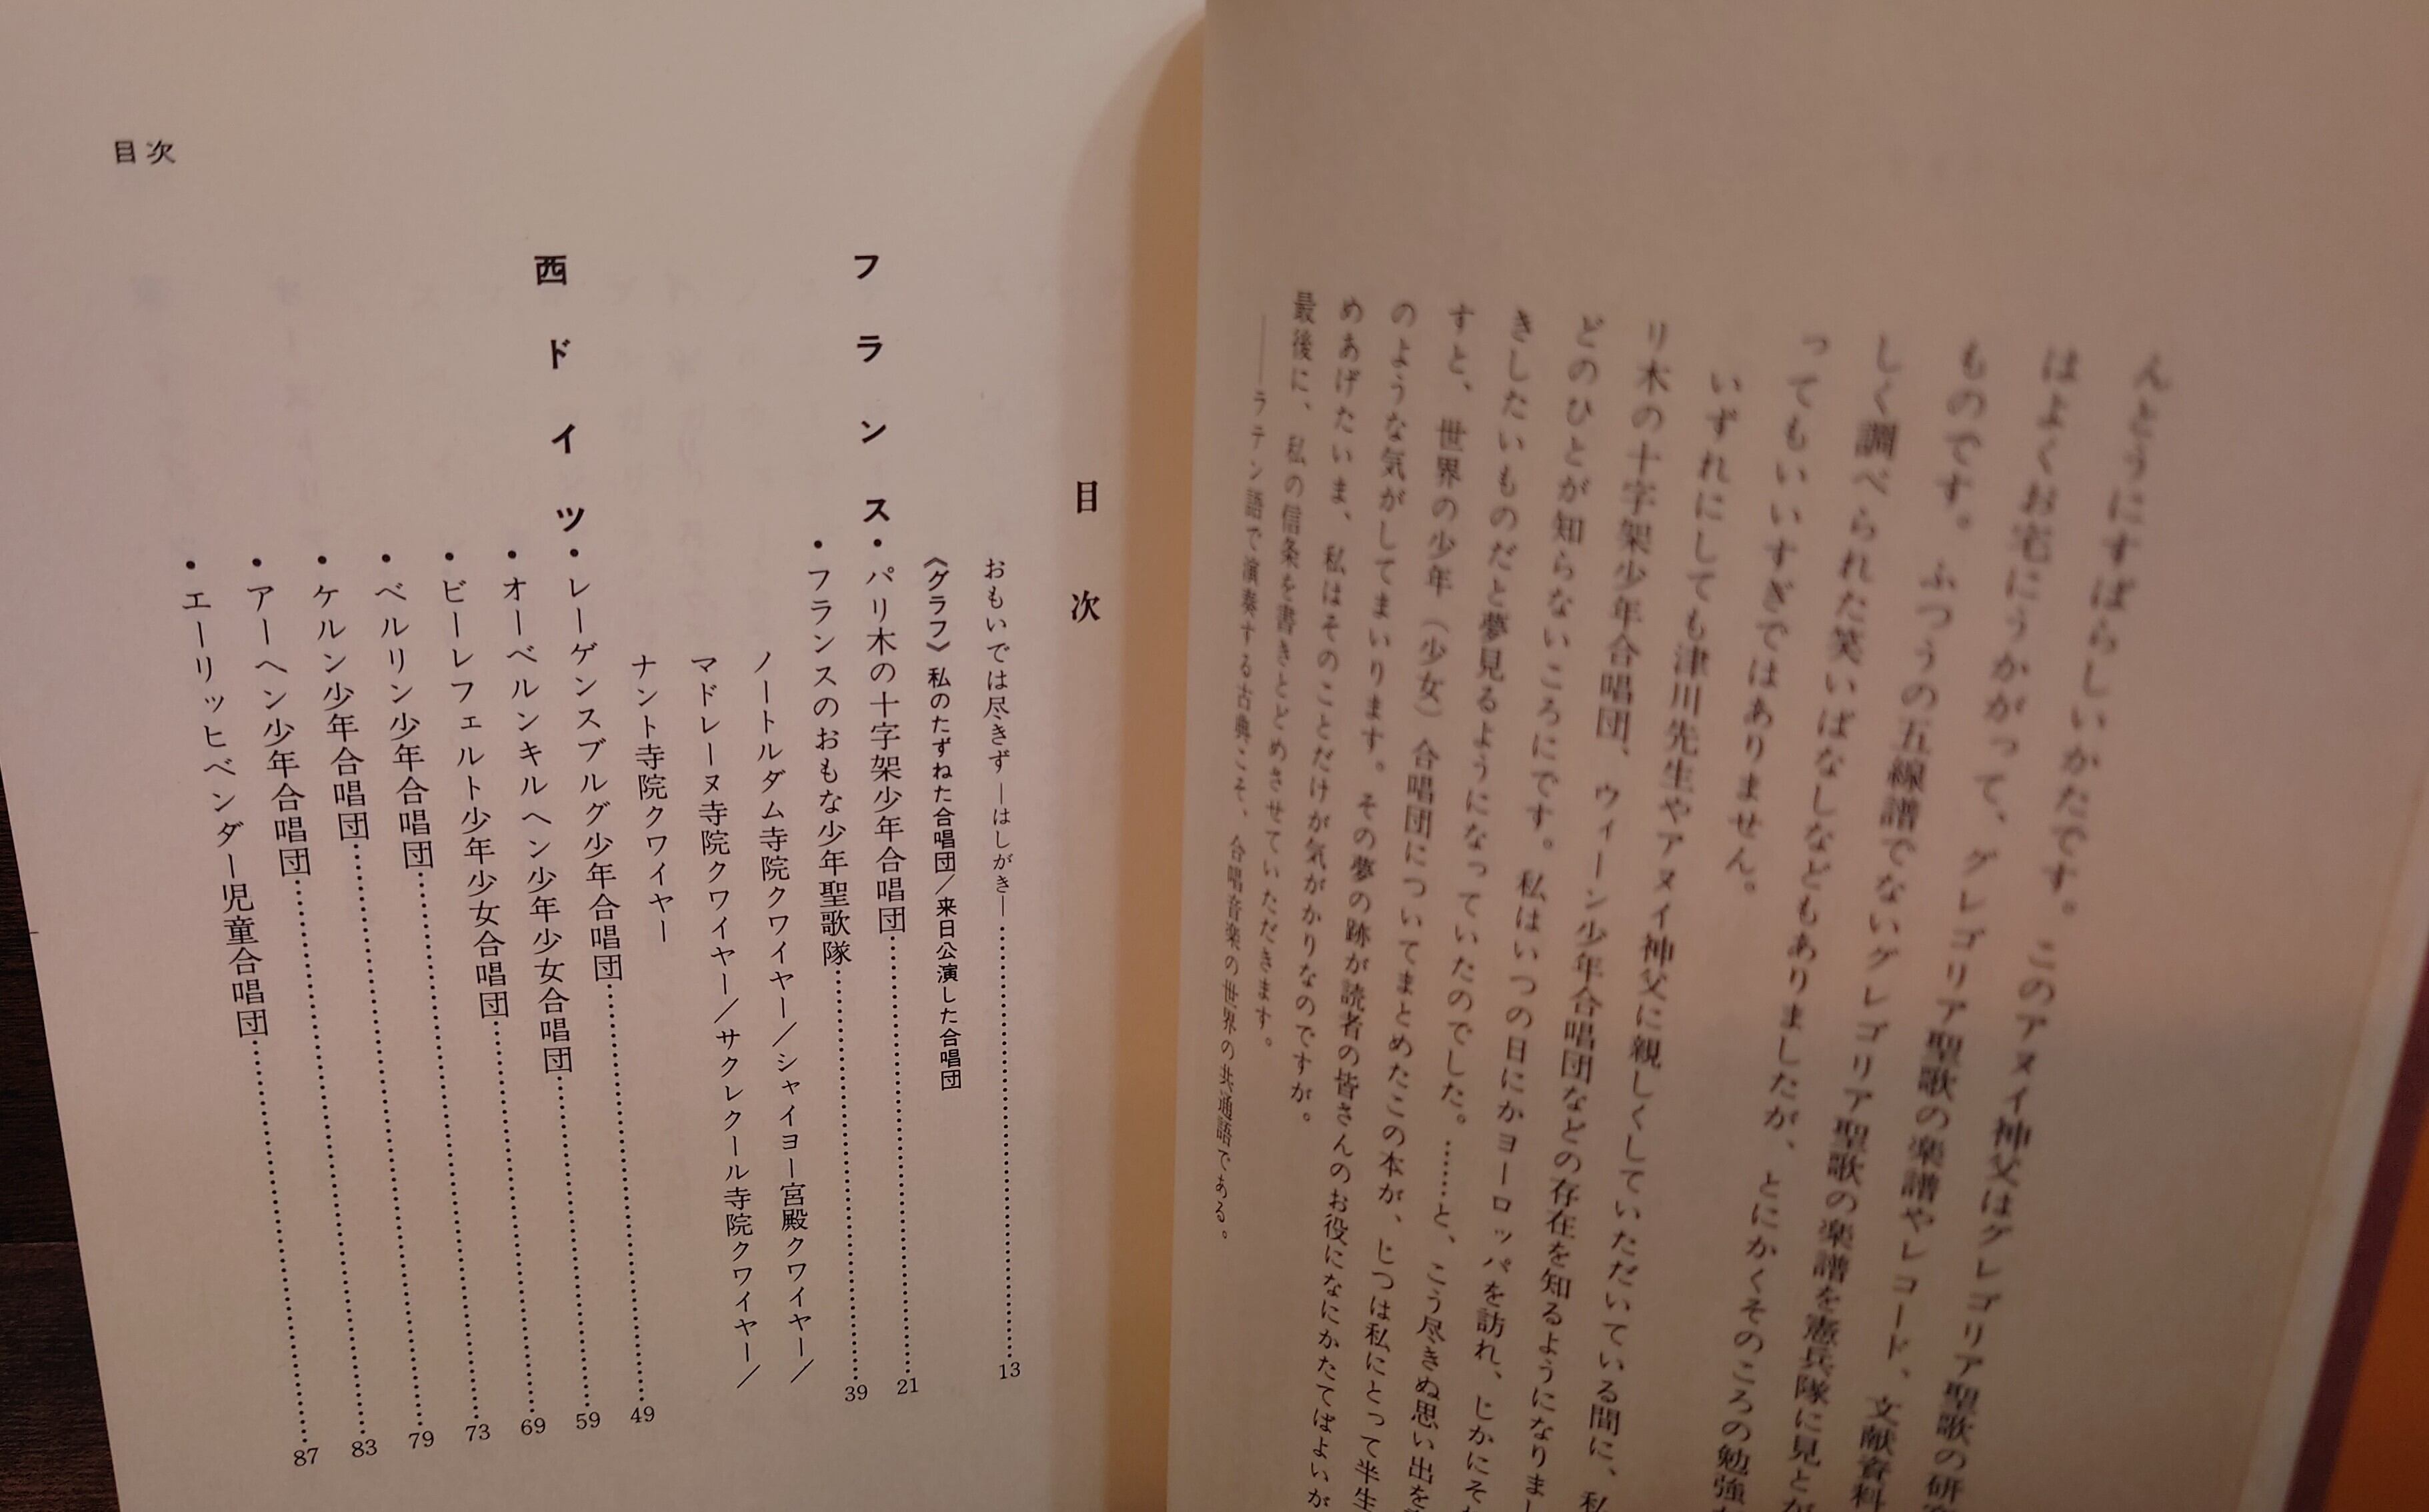 んとうにすばらしいかたです。このアヌイ神父はグレゴリア聖歌の研
はよくお宅にうかがって、グレゴリア聖歌の楽譜やレコード、文献資料
ものです。ふつうの五線譜でないグレゴリア聖歌の楽譜を憲兵隊に見とが
しく調べられた笑いばなしなどもありましたが、とにかくそのころの勉強
ってもいいすぎではありません。
いずれにしても津川先生やアヌイ神父に親しくしていただいている間に、私
リ木の十字架少年合唱団、ウィーン少年合唱団などの存在を知るようになりまし
どのひとが知らないころにです。私はいつの日にかヨーロッパを訪れ、じかにそ
きしたいものだと夢見るようになっていたのでした。……と、こう尽きぬ思い出を
すと、世界の少年（少女）合唱団についてまとめたこの本が、じつは私にとって半生
のような気がしてまいります。その夢の跡が読者の皆さんのお役になにかたてばよいが
めあげたいま、私はそのことだけが気がかりなのですが。
最後に、私の信条を書きとどめさせていただきます。
――ラテン語で演奏する古典こそ、合唱音楽の世界の共通語である。
目次
目次
おもいでは尽きず―はしがき―……13
《グラフ》私のたずねた合唱団／来日公演した合唱団
フランス
・パリ木の十字架少年合唱団……21
・フランスのおもな少年聖歌隊……39
ノートルダム寺院クワイヤー／シャイヨー宮殿クワイヤー／
マドレーヌ寺院クワイヤー／サクレクール寺院クワイヤー／
ナント寺院クワイヤー
西ドイツ
・レーゲンスブルグ少年合唱団……49
・オーベルンキルヘン少年少女合唱団……59
・ビーレフェルト少年少女合唱団……69
・ベルリン少年合唱団……73
・ケルン少年合唱団……79
・アーヘン少年合唱団……83
・エーリッヒベンダー児童合唱団……87